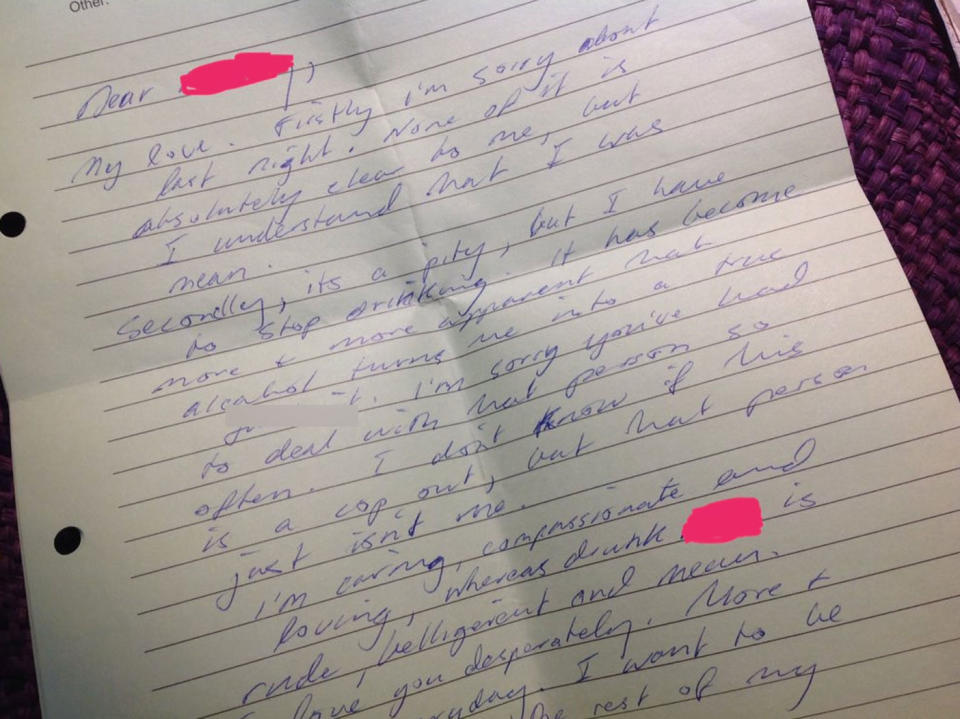 Other:
Dear ,
My love. Firstly I'm sorry about
last night. None of it is
absolutely clear to me, but
I understand that I was
mean.
Secondly, its a pity, but I have
to stop drinking. It has become
more + more apparent that
alcohol turns me into a true
I'm sorry you've had
to deal with that person so
often. I don't know if this
is a cop out, but that person
just isn't me.
I'm caring, compassionate and
loving, whereas drunk is
rude, belligerent and mean.
I love you desperately. More +
everyday. I want to be
the rest of my